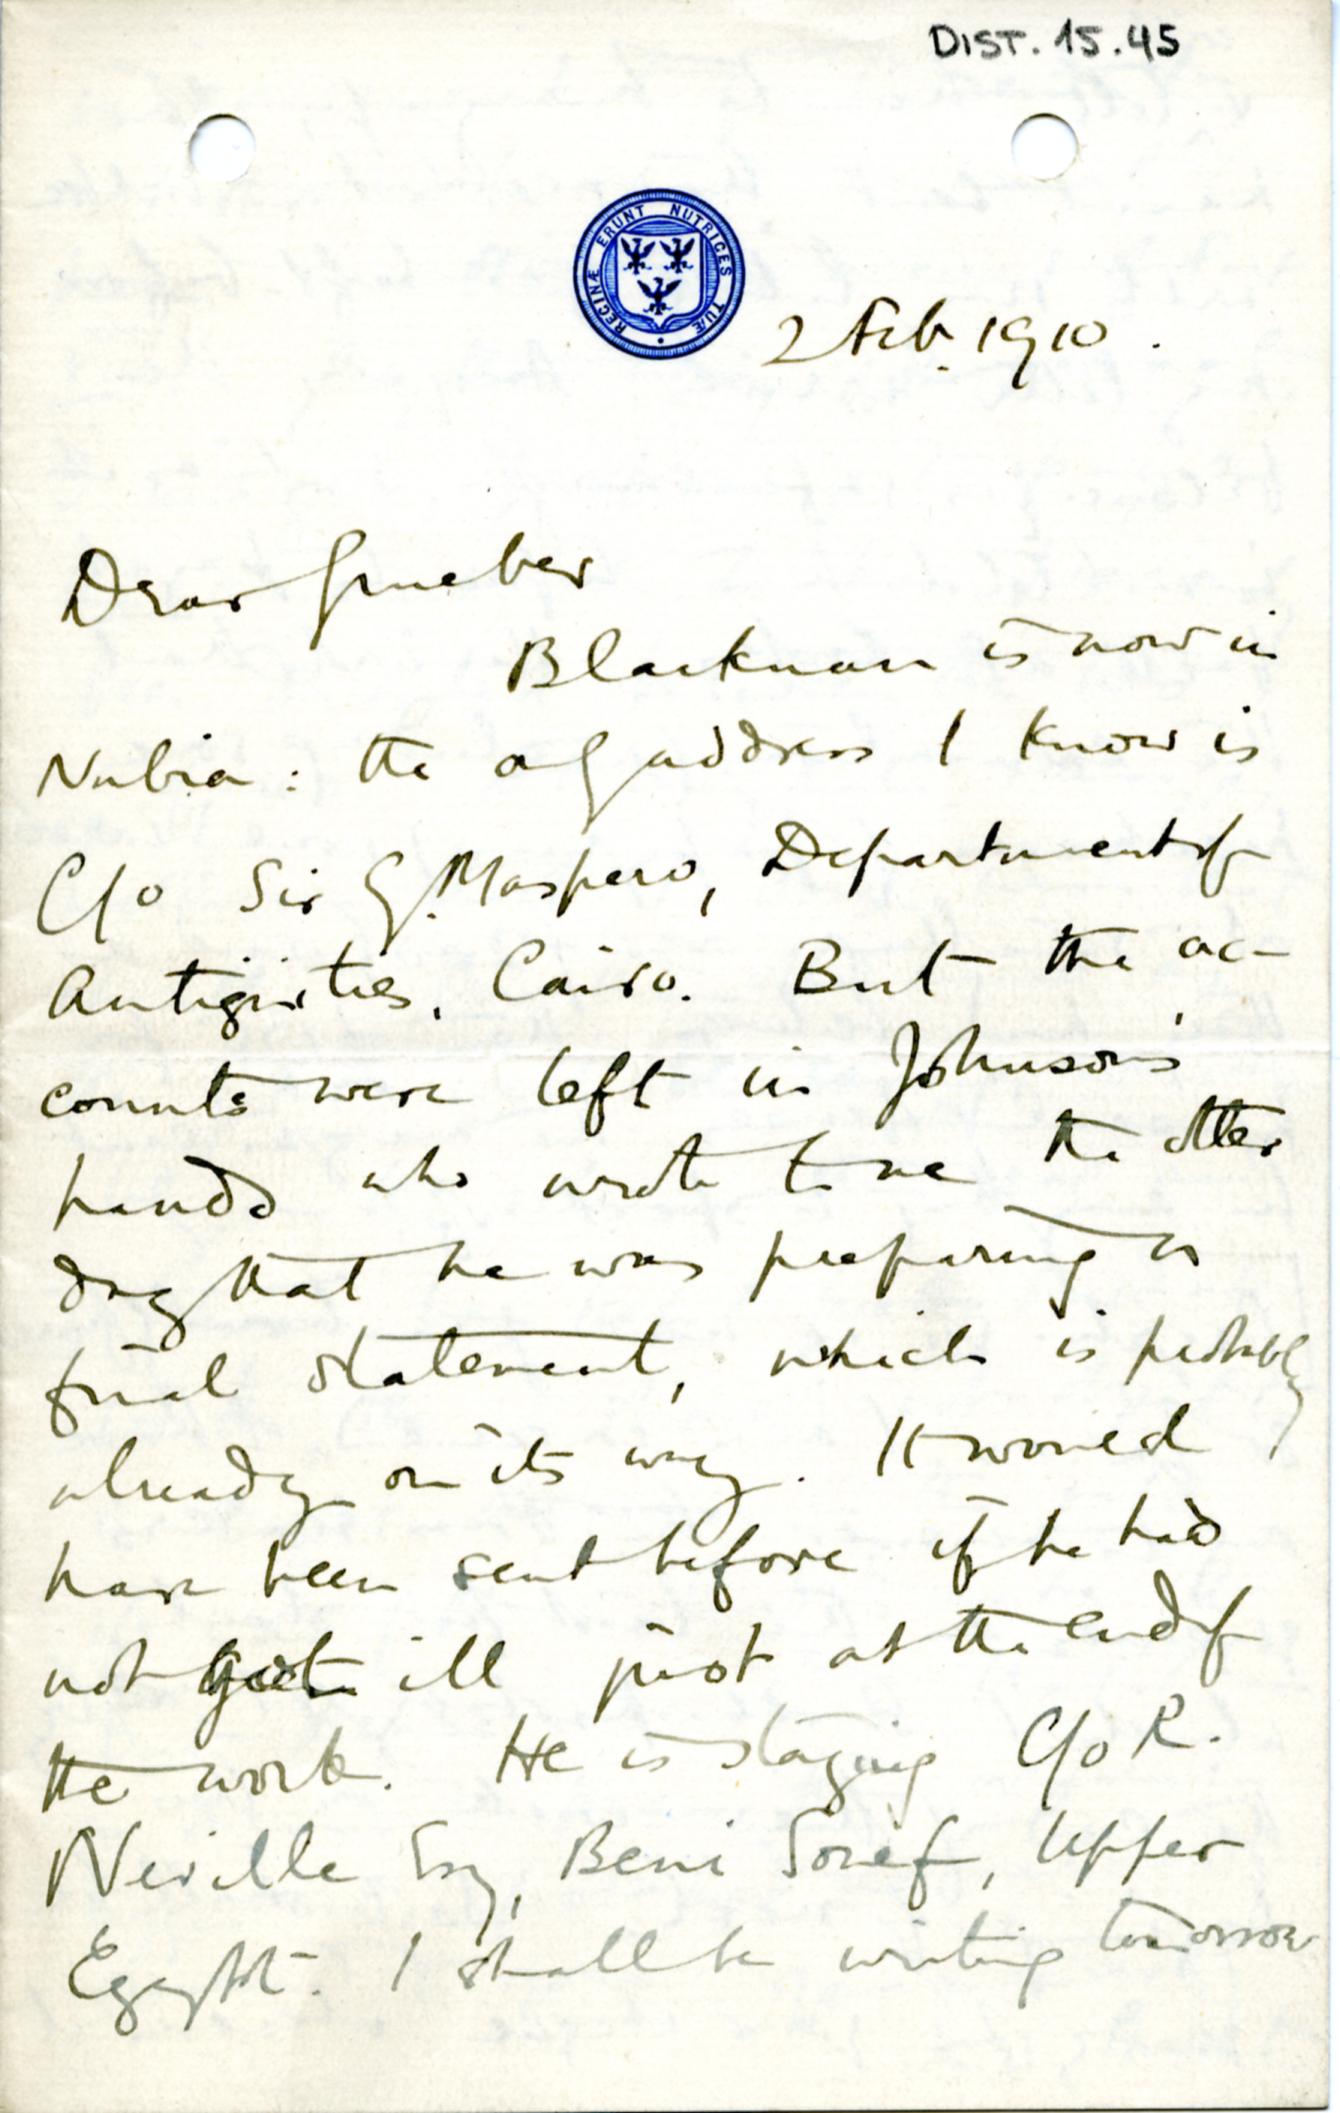 DIST. 15.45
REGINÆ ERUNT NUTRICES TUÆ
2 Feb. 1910.
Dear Grueber
Blackman is now in
Nubia: the only address I know is
C/o Sir G. Maspero, Department of
Antiquities, Cairo. But the ac-
counts were left in Johnson's
hands who wrote to me the other
day that he was preparing a
final statement, which is probably
already on its way. It would
have been sent before if he had
not got ill just at the end of
the work. He is staying C/o R.
Neville Esq, Beni Souef, Upper
Egypt. I shall be writing tomorrow